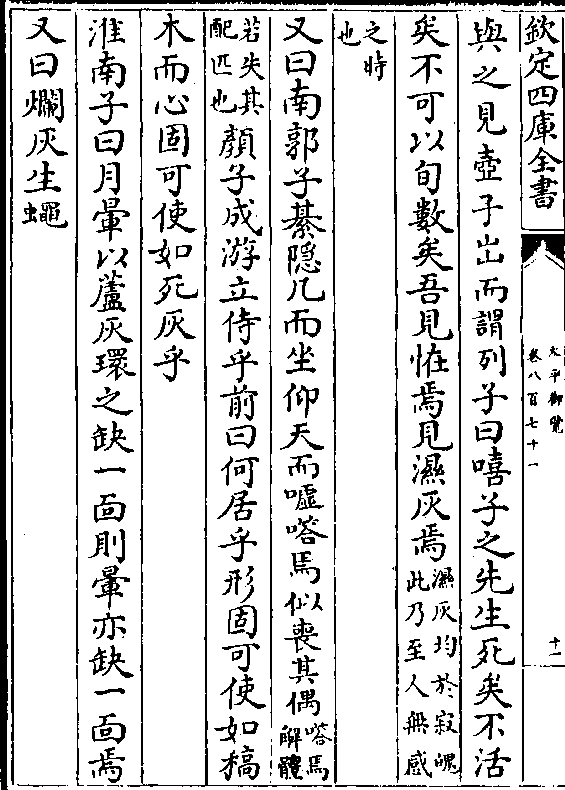 欽定四庫全書
太平御覽
卷八百七十一
十一
與之見壺子出而謂列子曰嘻子之先生死矣不活
矣不可以旬數矣吾見怪焉見濕灰焉濕灰均於寂魄此乃至人無感
之時也
又曰南郭子綦隱几而坐仰天而噓嗒焉似喪其偶嗒焉解體
若失其配匹也顏子成游立侍乎前曰何居乎形固可使如槁
木而心固可使如死灰乎
淮南子曰月暈以蘆灰環之缺一面則暈亦缺一面焉
又曰爛灰生蠅